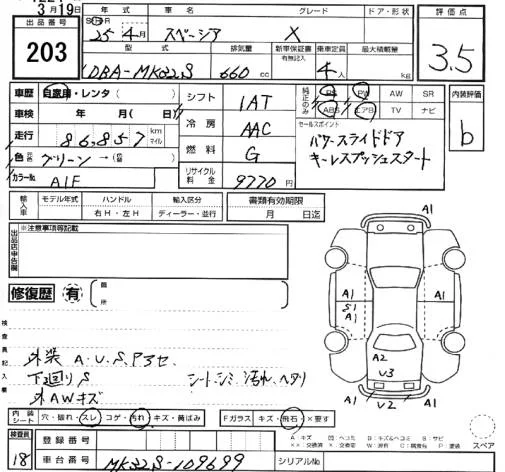 3月19日
出品番号
203
年式 車名 グレード ドア・形状
25年4月 スペーシア X
型式 排気量 新車保証書 有無記入 乗車定員 最大積載量
DBA-MK32S 660cc 4人 kg
評価点
3.5
車歴 自家用・レンタ( )
車検 年 月( 日)
走行 86,857 km マイル
色 グリーン→( )
カラーNo. A1F
シフト 1AT
冷房 AAC
燃料 G
リサイクル料金 9770円
純正のみ PS PW AW SR
ABS エアB TV ナビ
セールスポイント
パワースライドドア
キーレスプッシュスタート
内装評価
b
輸入車 モデル年式 ハンドル 輸入区分
右H・左H ディーラー・並行
書類有効期限
月 日迄
出品店申告欄
※注意事項等記載
修復歴 有 箇所
検査員記入欄
外装 A.U.S.Pアセ
下回りS
外AWキズ
シートシミ 汚れ ヘタリ
A1
A1
A1
S1
A1
A2
U3
U2
A1
内装シート 穴・破れ・スレ コゲ・汚れ キズ・黄ばみ
Fガラス キズ・飛石 ×要す
A:キズ U:ヘコミ B:キズ&ヘコミ S:サビ
××:交換済 X:交換要 W:波有 C:腐食有 P:塗装
スペア
検査員 18
登録番号
車台番号 MK32S-109699
シリアルNo.